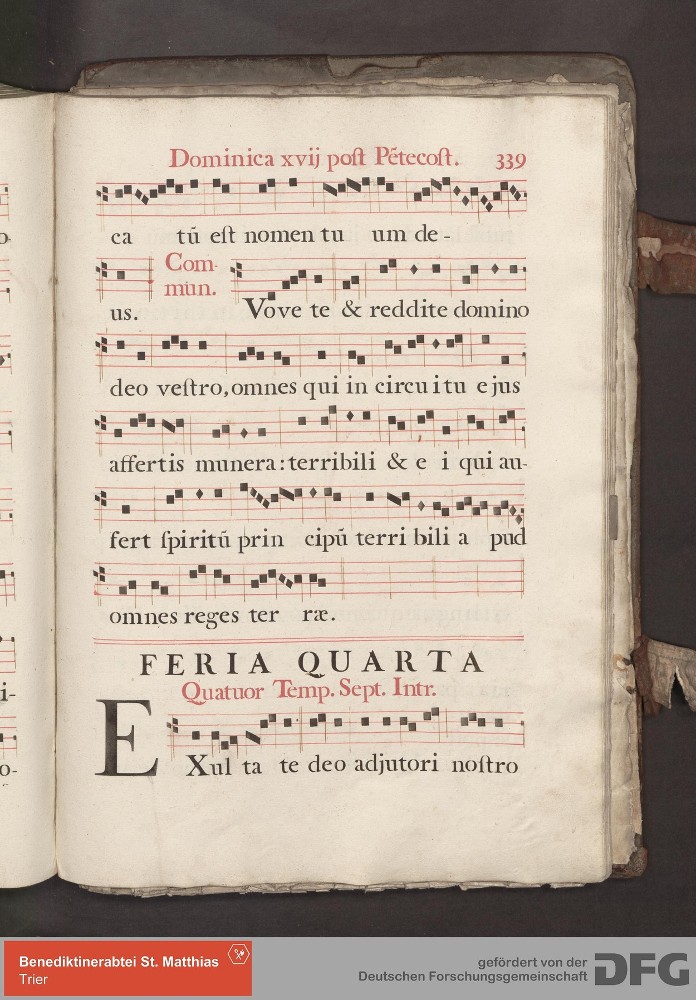 Dominica xvij poſt Pētecoſt. 339
ca tū eſt nomen tu um de -
us. Com-
mun. Vove te & reddite domino
deo veſtro, omnes qui in circu i tu e jus
affertis munera: terribili & e i qui au-
fert ſpiritū prin cipū terri bili a pud
omnes reges ter ræ.
FERIA QUARTA
Quatuor Temp. Sept. Intr.
EXul ta te deo adjutori noſtro
o-
i-
o-
Benediktinerabtei St. Matthias
Trier
gefördert von der
Deutschen Forschungsgemeinschaft DFG